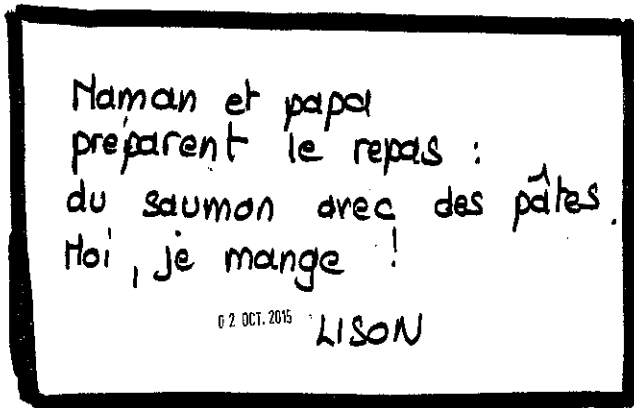 Maman et papa
préparent le repas :
du saumon avec des pâtes.
Moi, je mange !
02 OCT. 2015
LISON